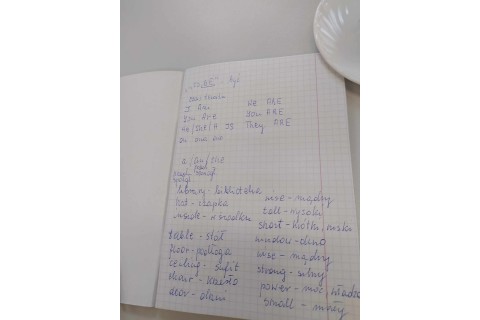 "To BE" - być
I AM
WE ARE
You ARE
You ARE
He/SHE/It IS
They ARE
library - biblioteka
hat - czapka
inside - w środku
table - stół
floor - podłoga
ceiling - sufit
chair - krzesło
door - drzwi
wise - mądry
tall - wysoki
short - krótki, niski
window - okno
wise - mądry
strong - silny
power - moc, władza
small - mały